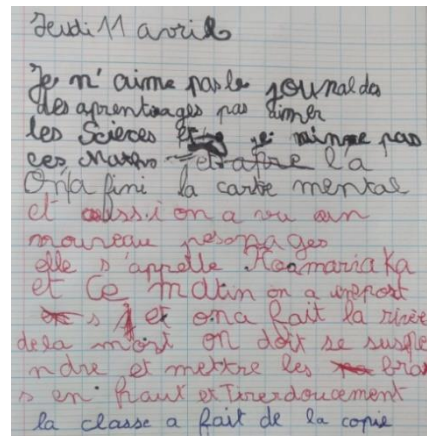 Jeudi 11 avril
Je n'aime pas le journal des
des aprentisages pas aimer
les Scieces je minme pas
ces Maths et afre la
On a fini la carte mental
et aussi on a vu un
nouveau pesonages
elle s'appelle Koomariaka
et Ce matin on a
s et on a fait la rivière
de la mort on doit se suspe
ndre et mettre les bra
s en haut et Tirer doucement
la classe a fait de la copie